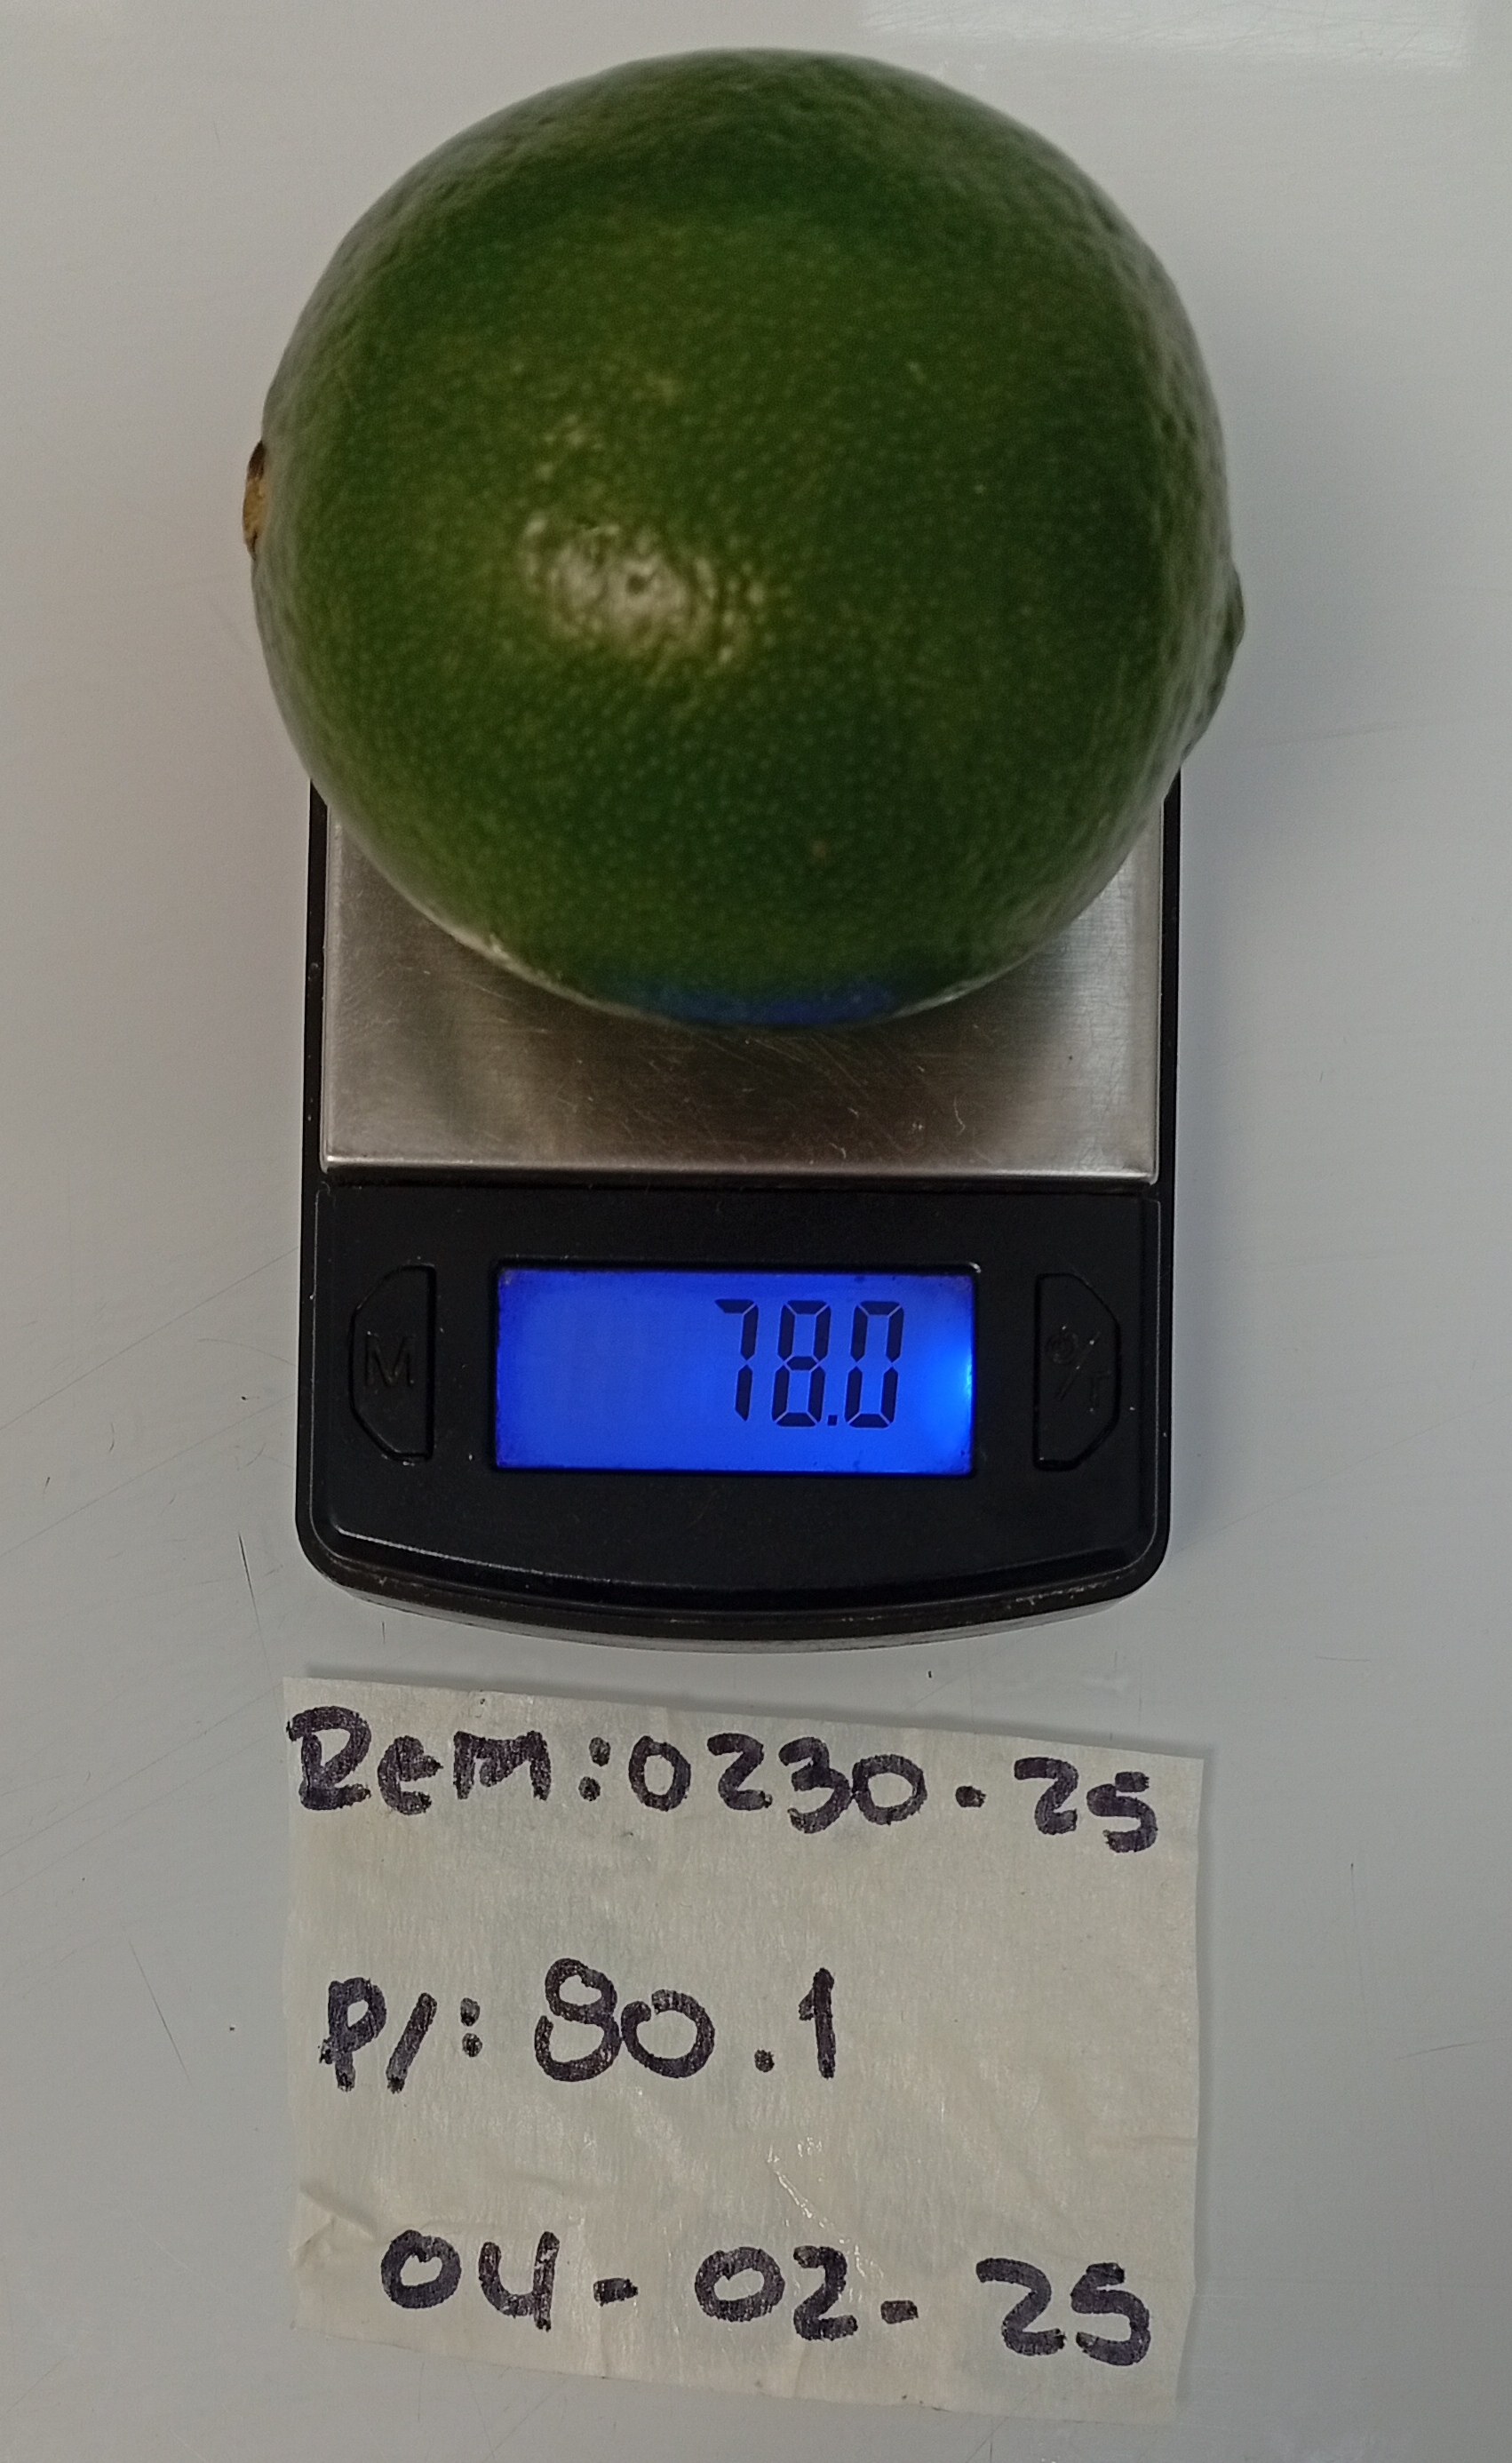 78.0
M
O/T
Rem:0230-25
P/: 80.1
04-02-25